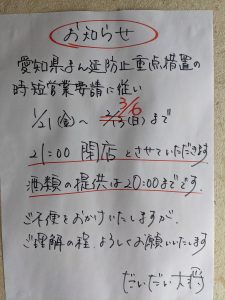 お知らせ
愛知県まん延防止重点措置の
時短営業要請に従い
3/6
1/21(金)〜 2/13(日)まで
21:00 閉店とさせていただきます
酒類の提供は20:00までです。
ご不便をおかけいたしますが、
ご理解の程、よろしくお願いいたします
だいだい大